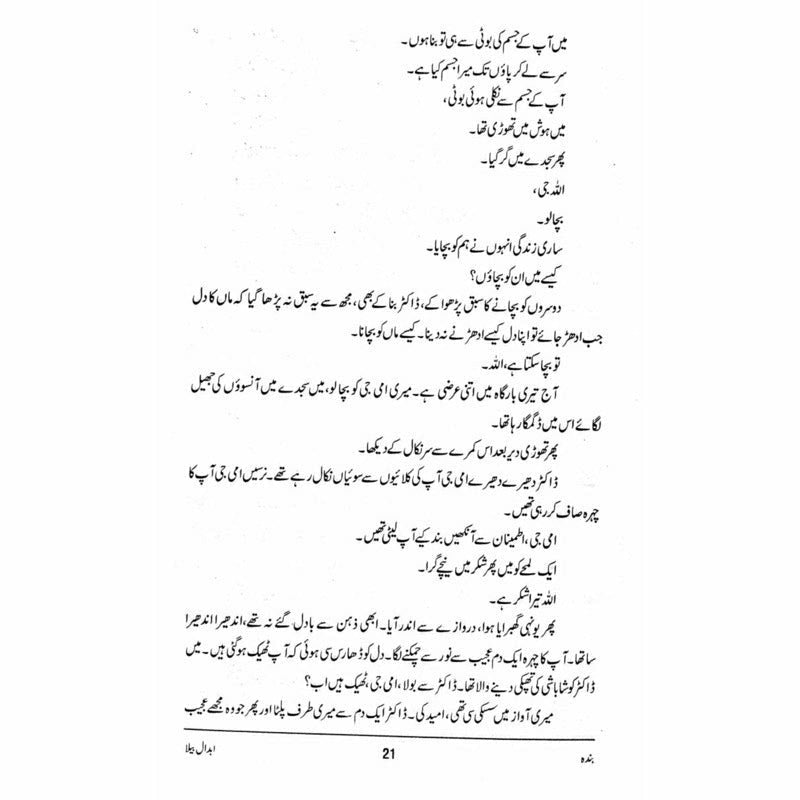 میں آپ کے جسم کی بوٹی سے ہی تو بنا ہوں۔
سر سے لے کر پاؤں تک میرا جسم کیا ہے۔
آپ کے جسم سے نکلی ہوئی بوٹی،
میں ہوش میں تھوڑی تھا۔
پھر سجدے میں گر گیا۔
اللہ جی،
بچالو۔
ساری زندگی انہوں نے ہم کو بچایا۔
کیسے میں ان کو بچاؤں؟
دوسروں کو بچانے کا سبق پڑھوا کے، ڈاکٹر بنا کے بھی، مجھ سے یہ سبق نہ پڑھا گیا کہ ماں کا دل
جب ادھڑ جائے تو اپنا دل کیسے ادھڑنے نہ دینا۔ کیسے ماں کو بچانا۔
تو بچا سکتا ہے، اللہ۔
آج تیری بارگاہ میں اتنی عرضی ہے۔ میری امی جی کو بچا لو، میں سجدے میں آنسوؤں کی جھیل
لگائے اس میں ڈگمگا رہا تھا۔
پھر تھوڑی دیر بعد اس کمرے سے سر نکال کے دیکھا۔
ڈاکٹر دھیرے دھیرے امی جی آپ کی کلائیوں سے سوئیاں نکال رہے تھے۔ نرسیں امی جی آپ کا
چہرہ صاف کر رہی تھیں۔
امی جی، اطمینان سے آنکھیں بند کیے آپ لیٹی تھیں۔
ایک لمحے کو میں پھر شکر میں نیچے گرا۔
اللہ تیرا شکر ہے۔
پھر یونہی گھبرایا ہوا، دروازے سے اندر آیا۔ ابھی ذہن سے بادل گئے نہ تھے، اندھیرا اندھیرا
سا تھا۔ آپ کا چہرہ ایک دم عجیب سے نور سے چمکنے لگا۔ دل کو ڈھارس سی ہوئی کہ آپ ٹھیک ہو گئی ہیں۔ میں
ڈاکٹر کو شاباشی کی تھپکی دینے والا تھا۔ ڈاکٹر سے بولا، امی جی، ٹھیک ہیں اب؟
میری آواز میں سسکی سی تھی، امید کی۔ ڈاکٹر ایک دم سے میری طرف پلٹا اور پھر جو وہ مجھے عجیب
بندہ 21 ابدال بیلا